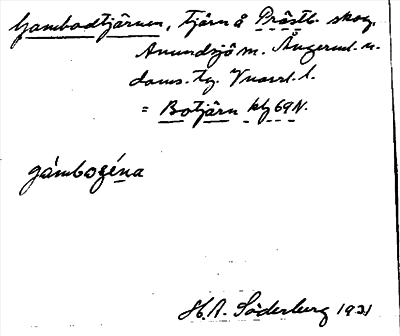 Gambodtjärnen, tjärn å Prästb. skog.
Anundsjö sn. Ångerml. n.
doms. tg. Vnorrl. l.
= Botjärn kbl 69 N.
gámbogéna
H. A. Söderberg 1931